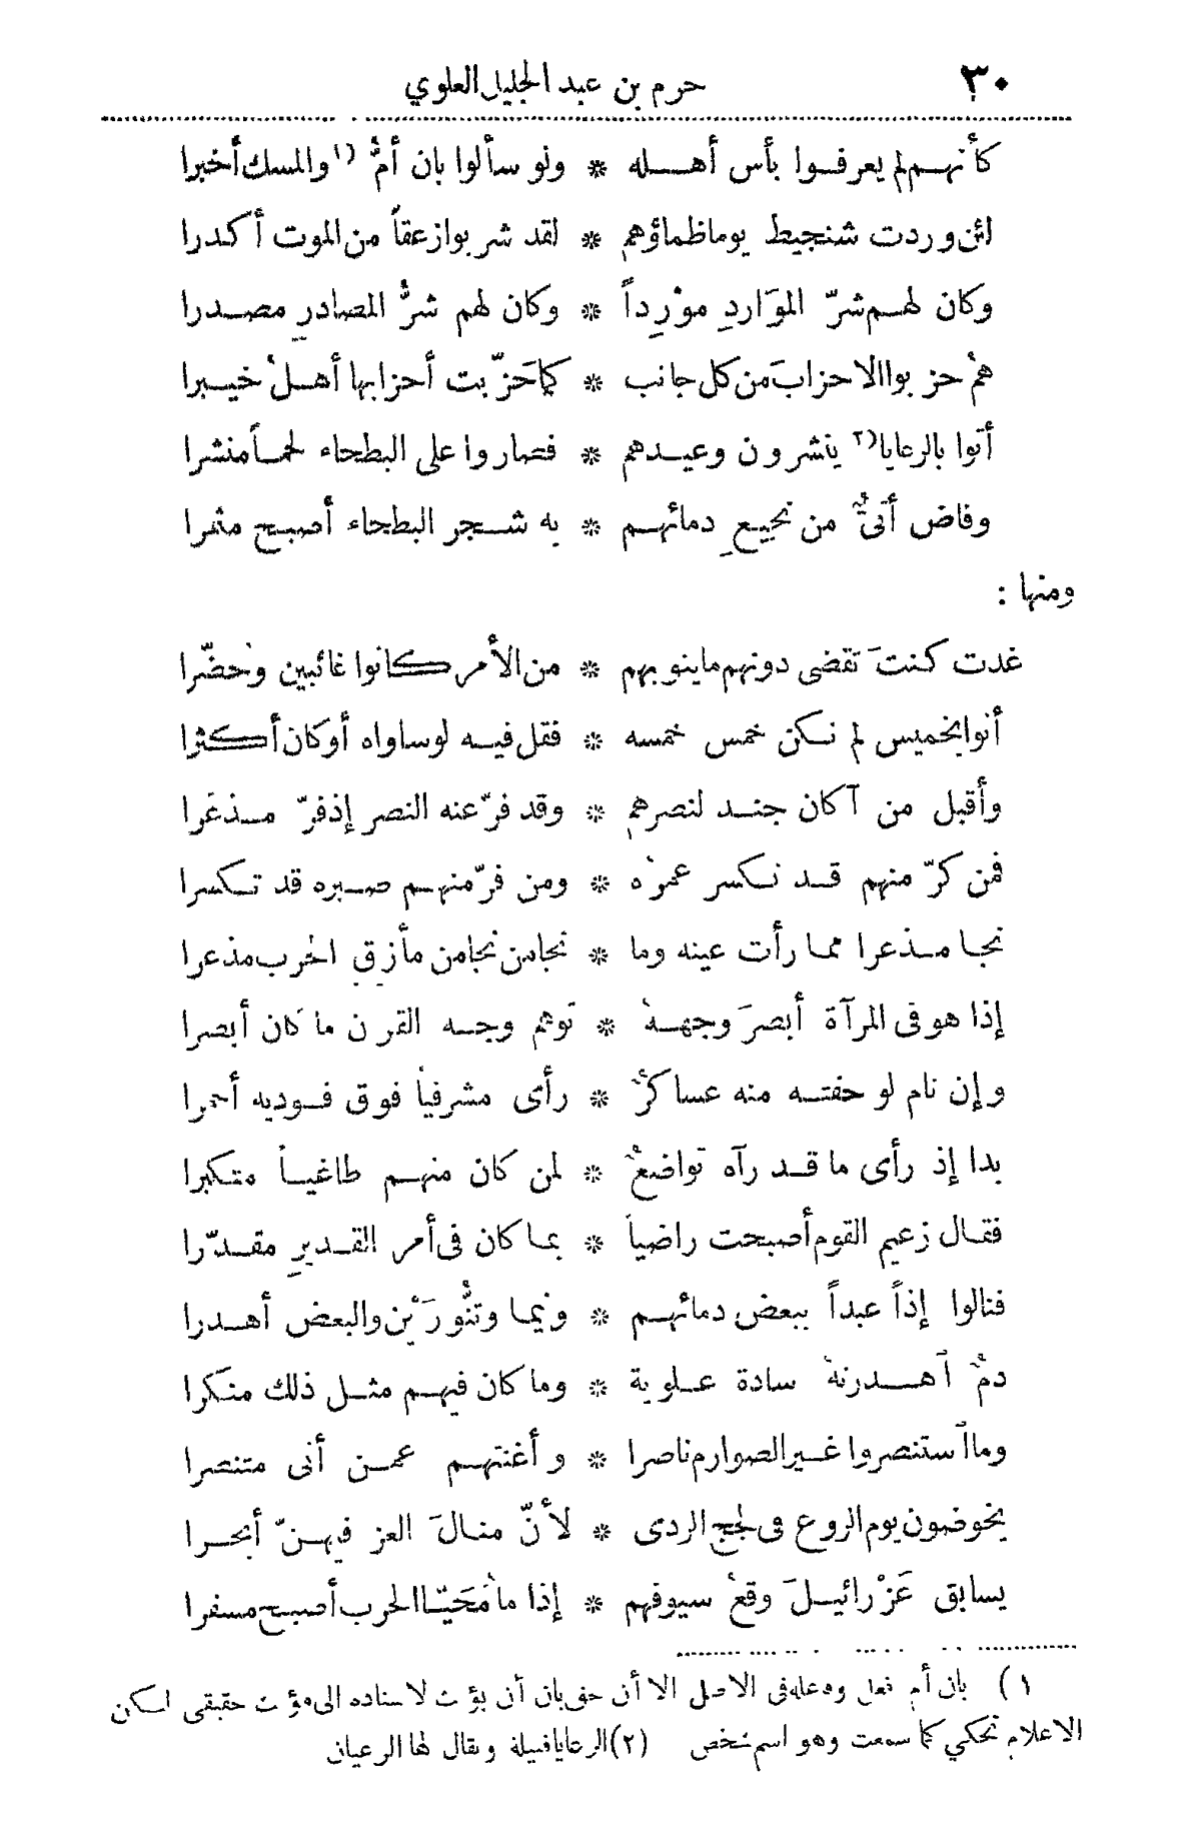 ٣٠ حرم بن عبد الجليل العلوي
كأنهم لم يعرفوا بأس أهله * ولو سألوا بان أمُّ (١ والمسك أخبرا
لئن وردت شنجيط يوما ظماؤهم * لقد شربوا زعقاً من الموت أكدرا
وكان لهم شرّ المَوَاردِ موْرِداً * وكان لهم شرُّ المصادرِ مصدرا
همُ حزبوا الاحزابَ من كل جانب * كما حَزّبت أحزابها أهلُ خيبرا
أتوا بالرعايا(٢ ينشرون وعيدهم * فصاروا على البطحاء لحماً منشرا
وفاض أتىٌّ من نجيعِ دمائهم * به شجر البطحاء أصبح مثمرا
ومنها :
غدت كنتَ تقضى دونهم ماينوبهم * من الأمر كانوا غائبين وحضّرا
أتوا بخميس لم نكن خمس خمسه * فقل فيه لو ساواه أو كان أكثرا
وأقبل من آكان جند لنصرهم * وقد فرّ عنه النصر إذ فرّ مذعَرا
فمن كرّ منهم قد نكسر عمرُه * ومن فرّ منهم صبره قد تكسرا
نجا مذعرا مما رأت عينه وما * نجا من نجا من مأزقِ الحرب مذعرا
إذا هو فى المرآة أبصرَ وجههُ * توهم وجه القرن ما كان أبصرا
وإن نام لو حفته منه عساكرٌ * رأى مشرفياً فوق فوديه أحمرا
بدا إذ رأى ما قد رآه تواضعٌ * لمن كان منهم طاغياً متكبرا
فقال زعيم القوم أصبحت راضياً * بما كان فى أمر القديرِ مقدّرا
فنالوا إذاً عبداً ببعض دمائهم * ونيما وتنُّورَيْنِ والبعض أهدرا
دمٌ آهدرته سادة علوية * وما كان فيهم مثل ذلك منكرا
وما استنصروا غير الصوارم ناصرا * وأغنتهم عمن أنى متنصرا
يخوضون يوم الروع فى لجج الردى * لأنّ منالَ العز فيهنّ أبحرا
يسابق عَزْرائيلَ وقعُ سيوفهم * إذا ما مُحَيّا الحرب أصبح مسفرا
١ ) بان أم فعل وفاعله فى الاصل الا أن حق بان أن يؤنث لاسناده الى مؤنث حقيقى لكن
الاعلام تحكي كما سمعت وهو اسم شخص (٢) الرعايا قبيلة ويقال لها الرعيان